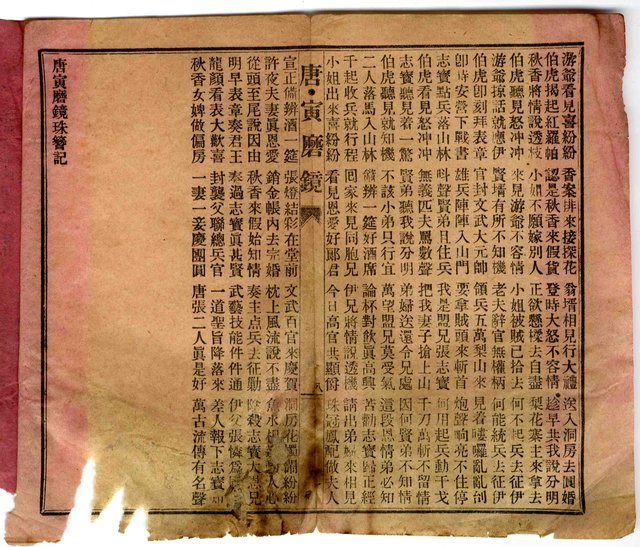 游爺看見喜紛紛 香案排來接探花 翁壻相見行大禮 送入洞房去圓婚
伯虎揭起紅羅帕 認是秋香來假貨 登時大怒不容情 趁早共我說分明
秋香將情說透枝 小姐不願嫁別人 正欲懸樑去自盡 梨花寨主來拿去
伯虎聽見怒冲冲 來見游爺不容情 小姐被賊已拾去 何不起兵去征伊
游爺掠話就應伊 賢壻有所不知機 老夫辭官無權柄 何能統兵去征伊
伯虎卽刻拜表章 官封文武大元帥 領兵五萬梨山來 見着嘍囉亂亂剖
卽時安營下戰書 雄兵陣陣入山門 要拿賊頭來斬首 炮聲响亮不住停
志寶點兵落山林 呌聲賢弟且住兵 我是盟兄張志寶 何用起兵動干戈
伯虎看見怒冲冲 無義匹夫罵數聲 把我妻子搶上山 千刀萬斬不留情
志寶聽見着一驚 賢弟聽我說分明 弟婦送還令兄處 因何賢弟不知情
伯虎聽見就知機 不該小弟只行宜 萬望盟兄莫受氣 這段恩情弟必知
二人落馬入山林 備辨一筵好酒席 論杯對飲眞高興 苦勸志寶歸正經
千起收兵就行程 回家來見同胞兄 伊兄將情說透機 請出弟婦來相見
小姐出來喜紛紛 看見恩愛好郎君 今日高官共顯爵 珠冠鳳配做夫人
唐·寅磨鏡 八
宣正備辨酒一筵 張燈結彩在堂前 文武百官來慶賀 洞房花燭鬧紛紛
許夜夫妻眞恩愛 銷金帳內去完婚 枕上風流說不盡 魚水相人心
從頭至尾說因由 秋香來假始知情 奏主点兵去征勦 陰殺志寶大恩兄
明早表章奏君王 奏過志寶眞甚賢 武藝技能件件通 伊父張憐爲
龍顏看表大歡喜 封襲父聯總兵官 一道聖旨降落來 差人報下志寶
秋香女婢做偏房 一妻一妾慶團圓 唐張二人眞是好 萬古流傳有名聲
唐寅磨鏡珠簪記